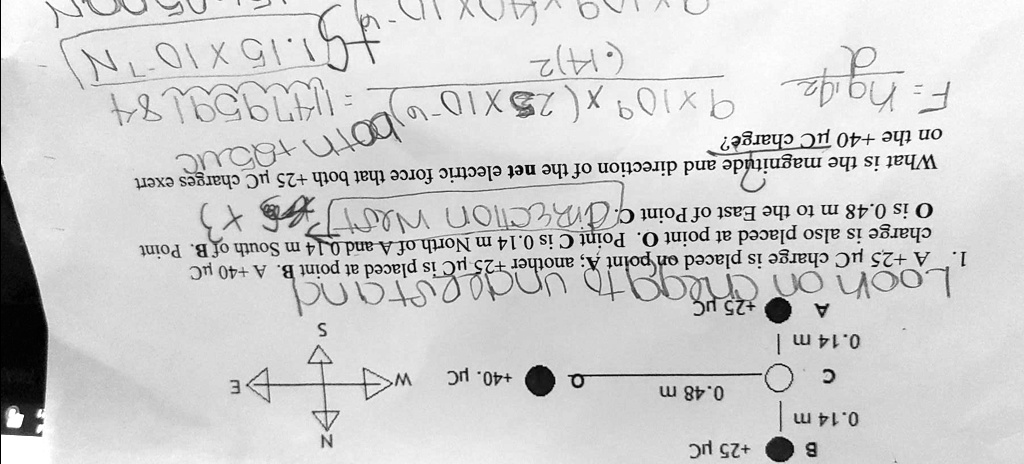 B +25 µC N
0.14 m
C 0.48 m O +40. µC W E
0.14 m
A +25 µC S
Look on chegg to understand
1. A +25 µC charge is placed on point A; another +25 µC is placed at point B. A +40 µC
charge is also placed at point O. Point C is 0.14 m North of A and 0.14 m South of B. Point
O is 0.48 m to the East of Point C. direction West
What is the magnitude and direction of the net electric force that both +25 µC charges exert
on the +40 µC charge? both +25uc
F = kq1q2 9x10⁹ x (25x10⁻⁶) = 11479591.84
d (.14)2
1.15 x 10⁻⁷ N